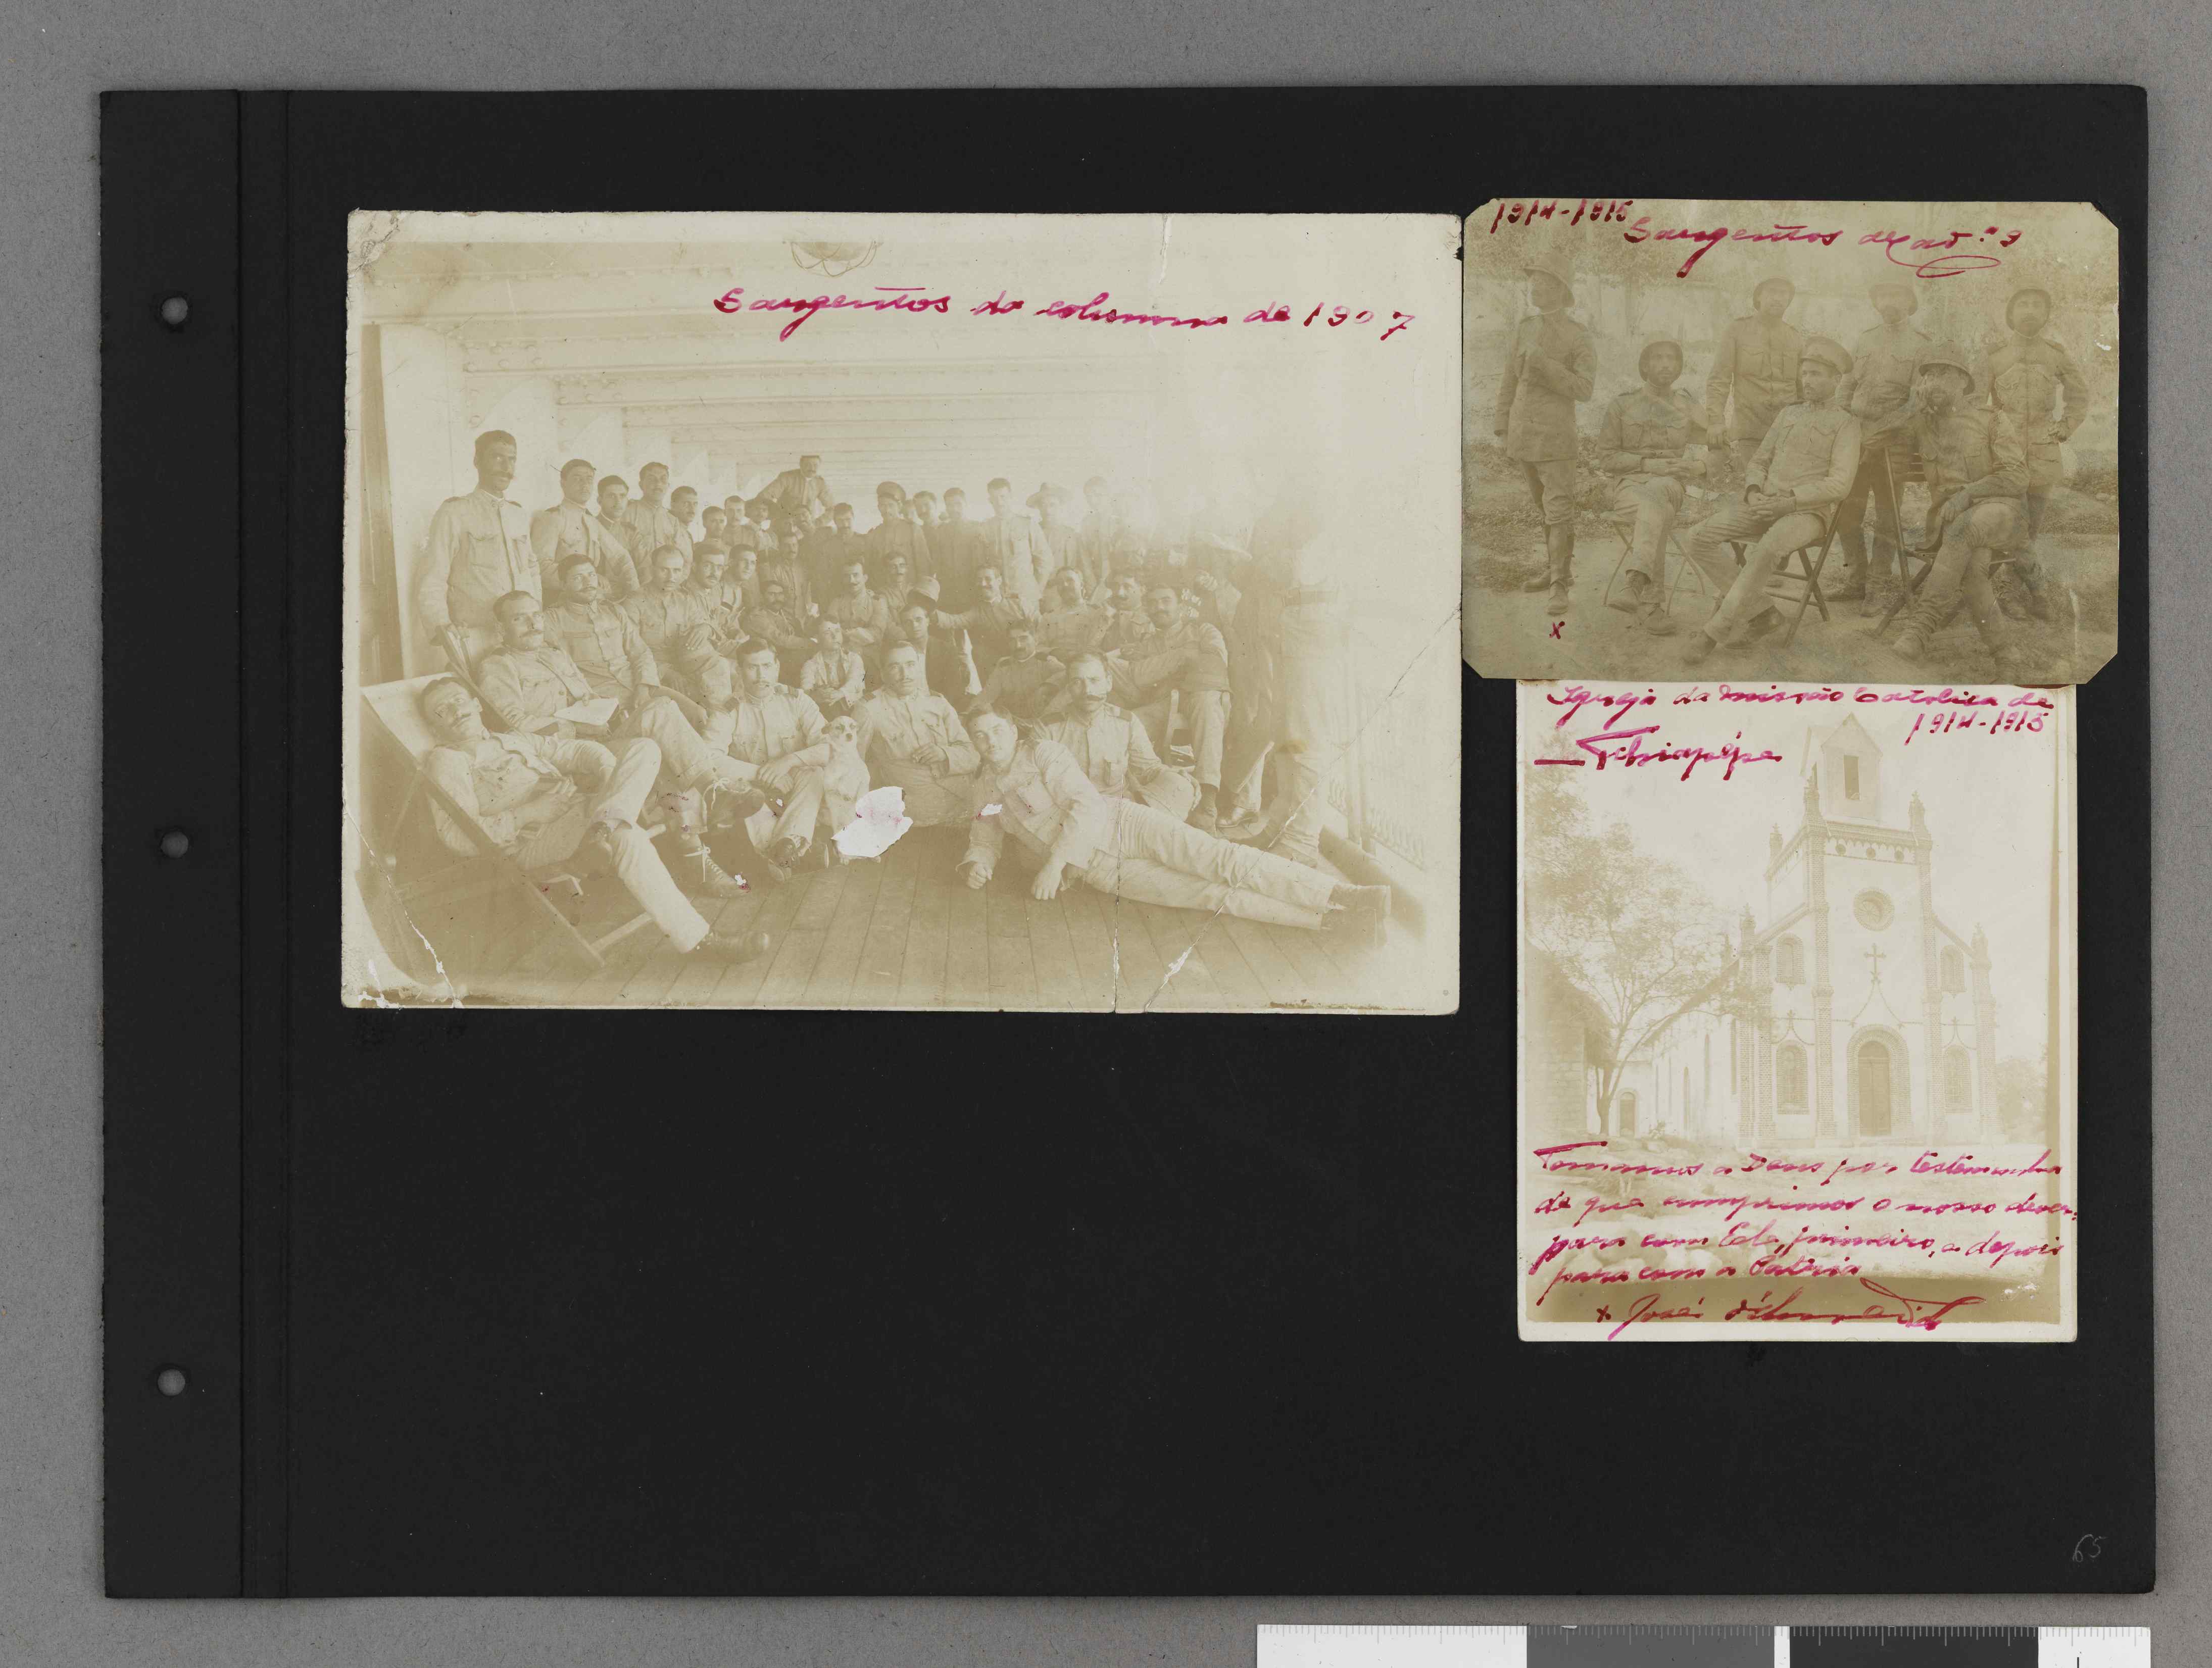 Sargentos da columna de 1907
1914-1915
Sargentos de
x
Igreja da missão Catolica de
1914-1915
Tomamos a Deus por testemunha
de que cumprimos o nosso dever:
para com Ele, primeiro, e depois
para com a Patria
x José
65